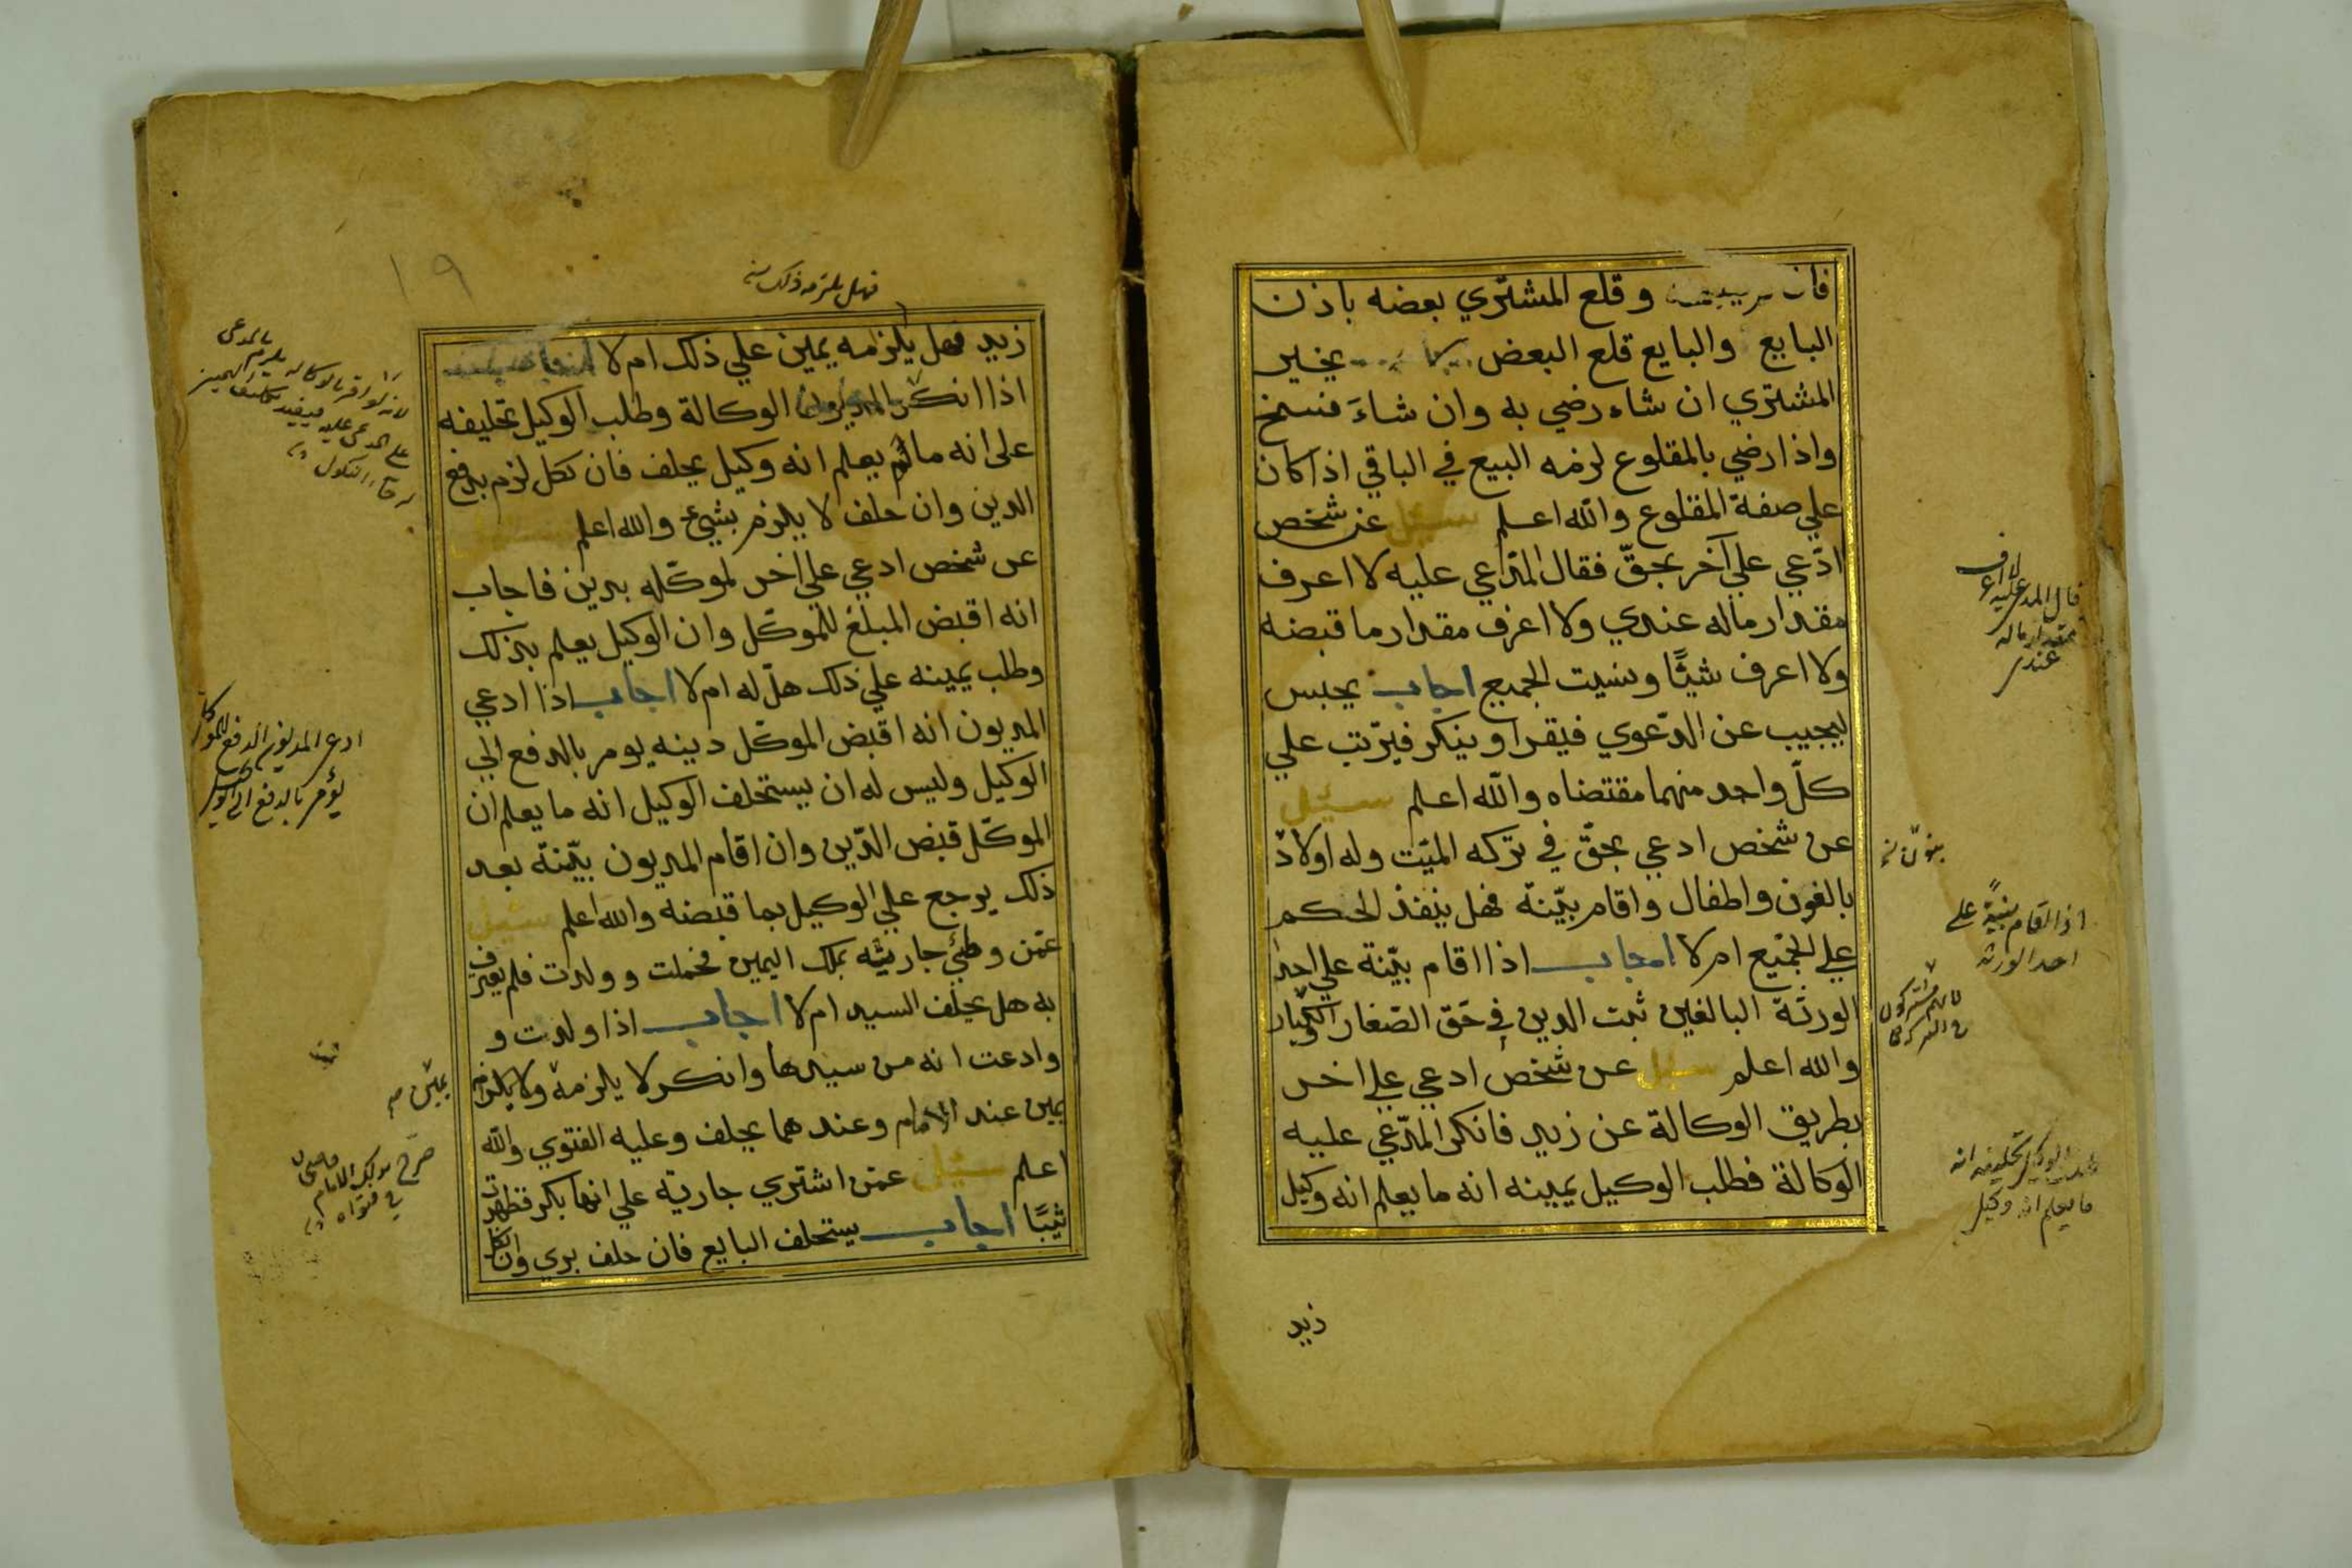 فان وقلع المشتري بعضه باذن
البايع والبايع قلع البعض يخير
المشتري ان شاء رضي به وان شاء فسخ
واذا رضي بالمقلوع لزمه البيع في الباقي اذا كان
علي صفة المقلوع والله اعلم سئل عن شخص
ادّعي علي آخر بحقّ فقال المدّاعي عليه لا اعرف
مقدار ماله عندي ولا اعرف مقدار ما قبضه
ولا اعرف شيئًا ونسيت الجميع اجاب يحبس
ليجيب عن الدّعوي فيقر او ينكر فيرتب علي
كلّ واحد منهما مقتضاه والله اعلم سئل
عن شخص ادعي بحقّ في تركه الميّت وله اولاد
بالغون واطفال واقام بيّنة فهل ينفذ الحكم
علي الجميع ام لا اجاب اذا اقام بيّنة علي احد
الورثة البالغين ثبت الدين في حق الصّغار الكبار
والله اعلم سئل عن شخص ادعي علي اخر
بطريق الوكالة عن زيد فانكر المدّعي عليه
الوكالة فطلب الوكيل يمينه انه ما يعلم انه وكيل
زيد
قال المدعي عليه لا اعرف
مقدار ماله
عندي
اذا اقام بينة على
احد الورثة
لانهم مشتركون
في التركة
الوكيل تحليفه انه
ما يعلم انه وكيل
١٩
فهل يلزمه ذلك
زيد فهل يلزمه يمين علي ذلك ام لا
اذا انكر المديون الوكالة وطلب الوكيل تحليفه
على انه ما لم يعلم انه وكيل يحلف فان نكل لزم بدفع
الدين وان حلف لا يلزم بشيء والله اعلم سئل
عن شخص ادعي علي اخر لموكّله بدين فاجاب
انه اقبض المبلغ للموكّل وان الوكيل يعلم بذلك
وطلب يمينه علي ذلك هل له ام لا اجاب اذا ادعي
المديون انه اقبض الموكّل دينه يومر بالدفع الي
الوكيل وليس له ان يستحلف الوكيل انه ما يعلم ان
الموكّل قبض الدّين وان اقام المديون بيّنة بعد
ذلك يرجع علي الوكيل بما قبضه والله اعلم سئل
عمّن وطئ جاريته بملك اليمين فحملت وولدت فلم يعترف
به هل يحلف السيد ام لا اجاب اذا ولدت و
وادعت انه من سيدها وانكر لا يلزمه ولا يلزم
يمين عند الامام وعندهما يحلف وعليه الفتوي والله
اعلم سئل عمّن اشتري جارية علي انها بكر فظهرت
ثيبًا اجاب يستحلف البايع فان حلف بري وان نكل
لانه لو اقر بالوكالة يلزم بالمدعى
على المدعى عليه فيفيد تكليف اليمين
النكول
ادعى المديون الدفع للموكل
يؤمر بالدفع الى الوكيل
يمين
صرح بذلك الامام قاضيخان
في فتواه